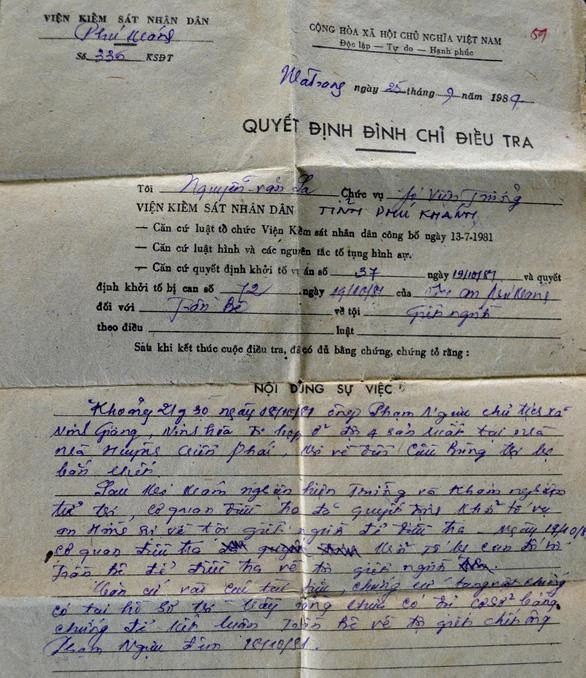 VIỆN KIỂM SÁT NHÂN DÂN
Phú Khánh
Số 236 KSĐT
CỘNG HÒA XÃ HỘI CHỦ NGHĨA VIỆT NAM
Độc lập — Tự do — Hạnh phúc
59
Nha Trang ngày 25 tháng 9 năm 1984
QUYẾT ĐỊNH ĐÌNH CHỈ ĐIỀU TRA
Tôi Nguyễn văn Chức vụ Viện Trưởng
VIỆN KIỂM SÁT NHÂN DÂN TỈNH PHÚ KHÁNH
— Căn cứ luật tổ chức Viện Kểm sát nhân dân công bố ngày 13-7-1981
— Căn cứ luật hình và các nguyên tắc tố tụng hình sự.
— Căn cứ quyết định khởi tố vụ án số 37 ngày 19/10/81 và quyết
định khởi tố bị can số 72 ngày 19/10/81 của
đối với Trần Bê về tội giết người
theo điều luật
Sau khi kết thúc cuộc điều tra, đã có đủ bằng chứng, chứng tỏ rằng :
NỘI DUNG SỰ VIỆC
Khoảng 21g30 ngày ông Phạm Ngựu chủ tịch xã
Ninh Giang, Ninh Hòa đi họp ở đội 4 sản xuất tại nhà
về đến bị
bắn chết
Sau khi khám nghiệm hiện trường và khám nghiệm
tử thi, cơ quan điều tra đã quyết định khởi tố vụ
án về tội giết người để điều tra ngày
cơ quan điều tra khởi tố bị can đối với
Trần Bê để điều tra về tội giết người
Căn cứ vào các tài liệu, chứng cứ
có tại hồ sơ thấy rằng chưa có đủ cơ sở bằng
chứng để kết luận Trần Bê về tội giết chết ông
Phạm Ngựu đêm